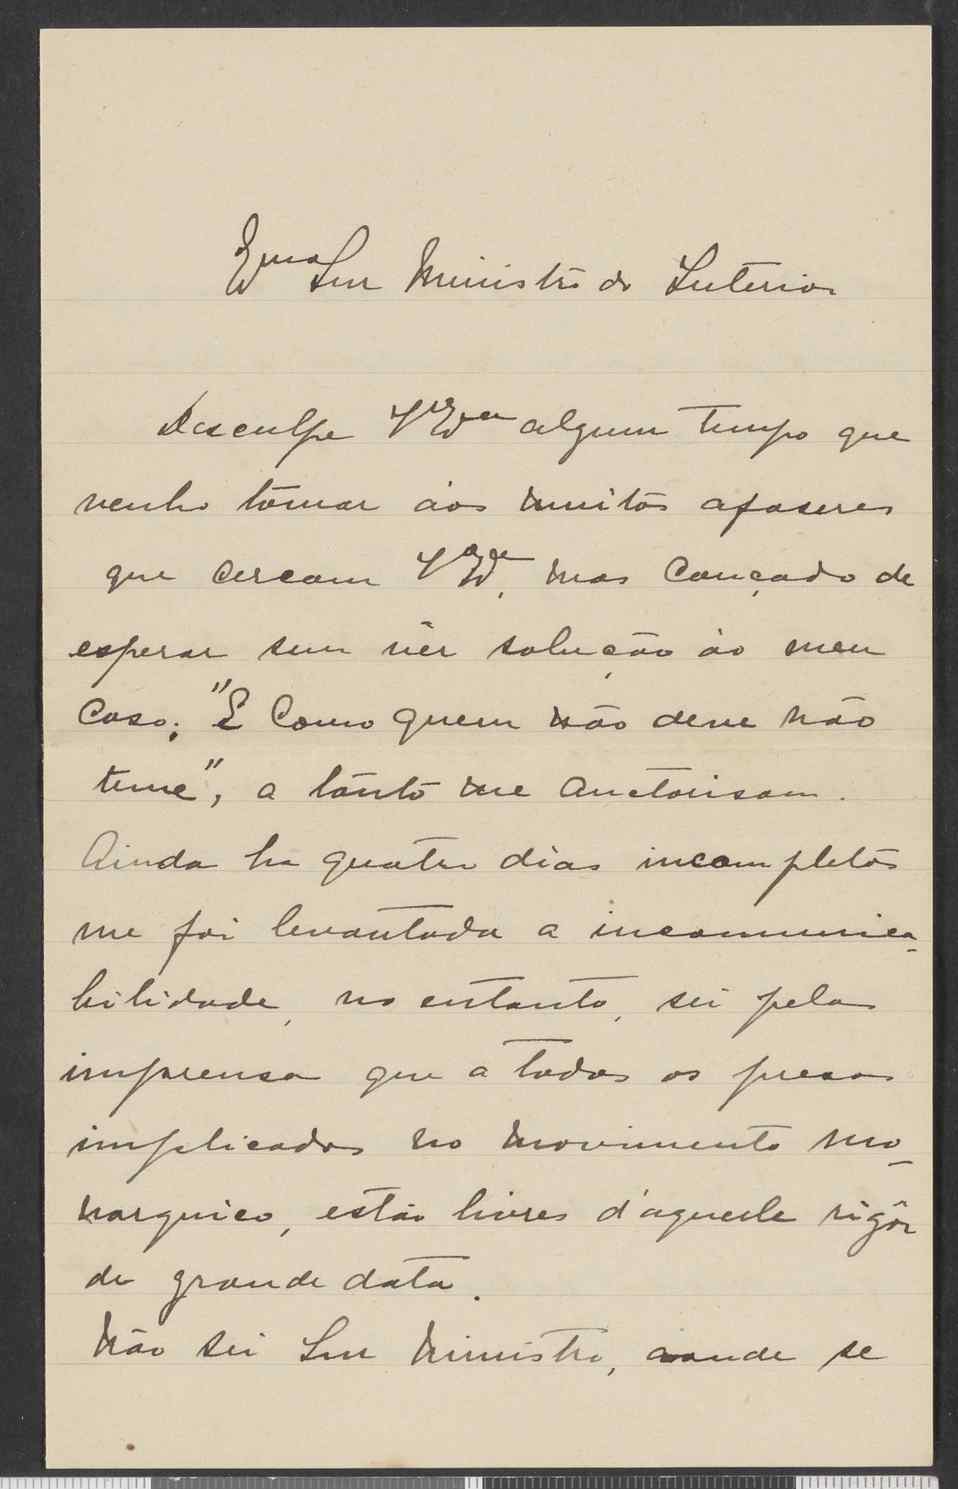 Exmo Snr Ministro do Interior
Desculpe V Exa algum tempo que
venho tômar aos muitos afaseres
que cercam V Exa, mas cançado de
esperar sem vêr solução ao meu
caso; "E como quem não deve não
teme", a tanto me auctorisam.
Ainda ha quatro dias incompletos
me foi levantada a incomunica-
bilidade, no entanto, sei pela
imprensa que a todos os presos
implicados no movimento mo-
narquico, estão livres d'aquele rigôr
de grande data.
Não sei Snr Ministro, aonde se